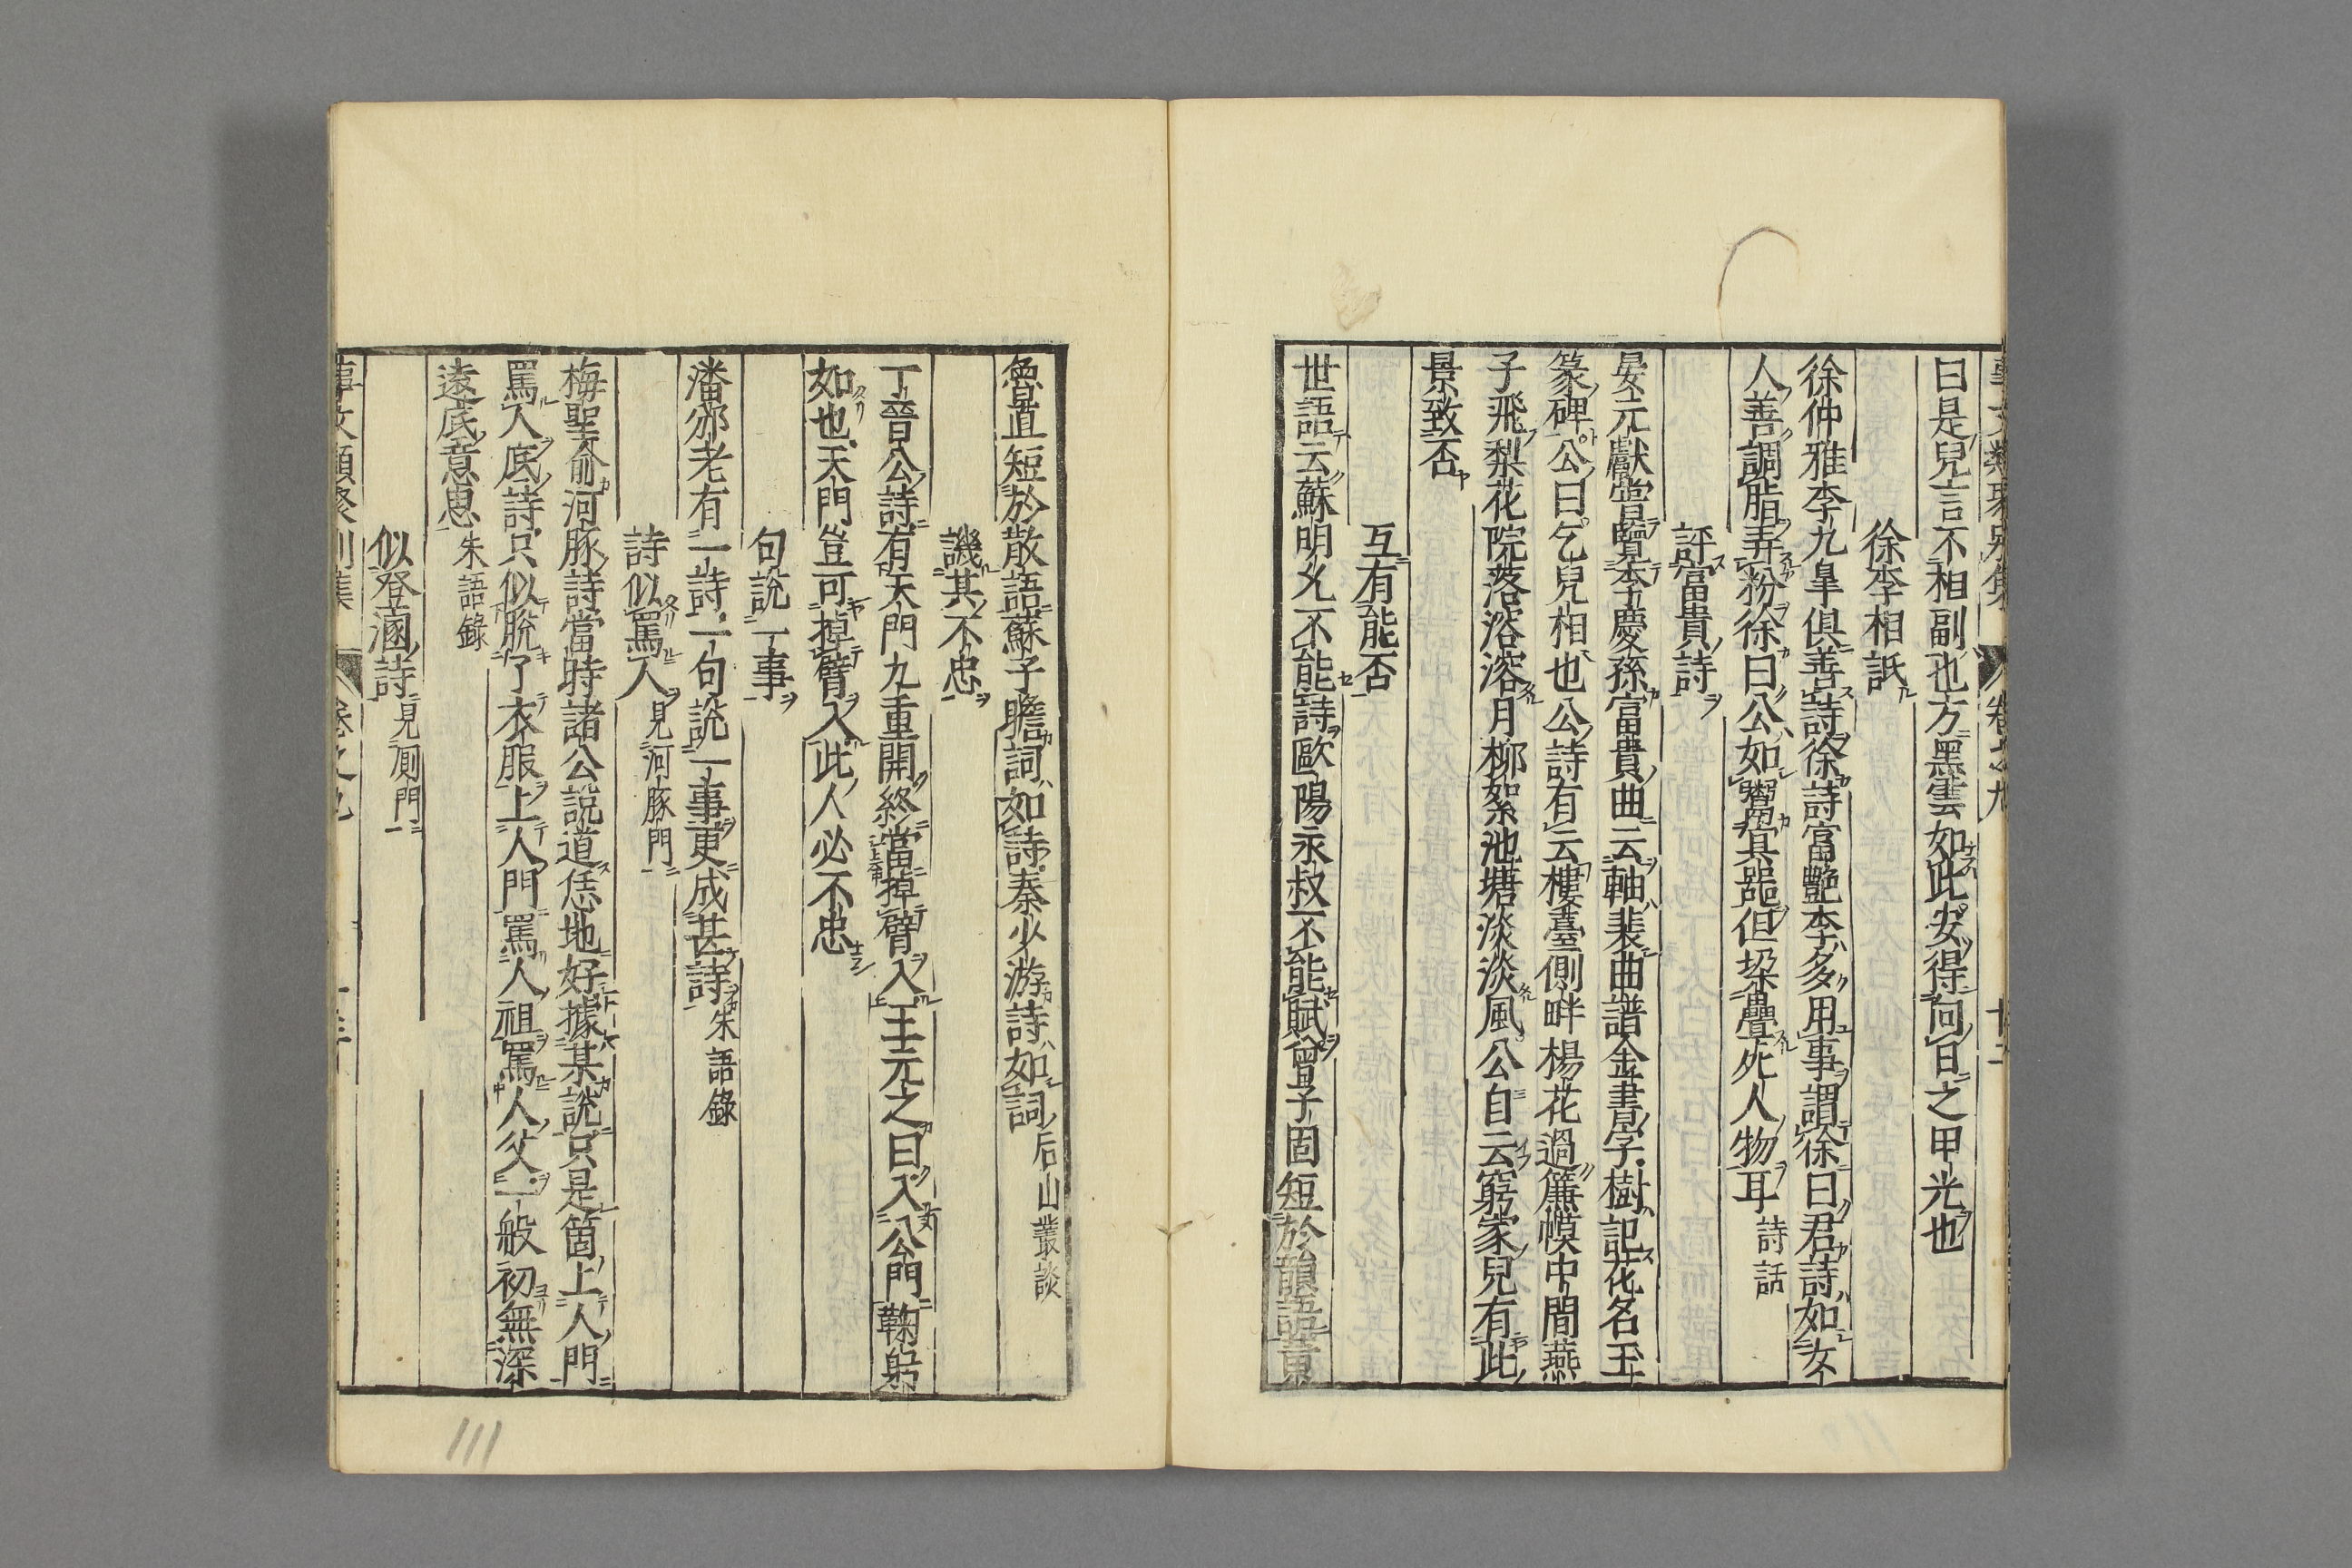 曰是兒言不相副也方黑雲如此安得向日之甲光也
徐李相詆
徐仲雅李九皐俱善詩徐詩富艶李多用事謂徐曰君詩如女
人善調脂弄粉徐曰公如鬻冥器但垜疊死人物耳詩話
評富貴詩
晏元獻嘗覽李慶孫富貴曲云軸裝曲譜金書字樹記花名玉
篆碑公曰乞兒相也公詩有云樓臺側畔楊花過簾幙中間燕
子飛梨花院落溶溶月柳絮池塘淡淡風公自云窮家兒有此
景致否
互有能否
世語云蘇明允不能詩歐陽永叔不能賦曾子固短於韻語黄
魯直短於散語蘇子瞻詞如詩秦少游詩如詞后山叢談
譏其不忠
丁晉公詩有天門九重開終當掉臂入王元之曰入公門鞠躬
如也天門豈可掉臂入此人必不忠
句說一事
潘邠老有一詩一句說一事更成甚詩朱語錄
詩似罵人見河豚門
梅聖俞河豚詩當時諸公說道恁地好據某說只是箇上人門
罵人底詩只似脫了衣服上人門罵人祖罵人父一般初無深
遠底意思朱語錄
似登溷詩見厠門
事文類聚別集 卷之九